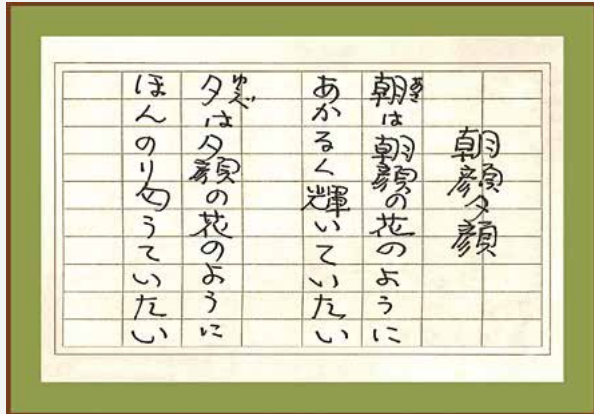 朝顔夕顔
朝は朝顔の花のように
あかるく輝いていたい
夕は夕顔の花のように
ほんのり匂うていたい